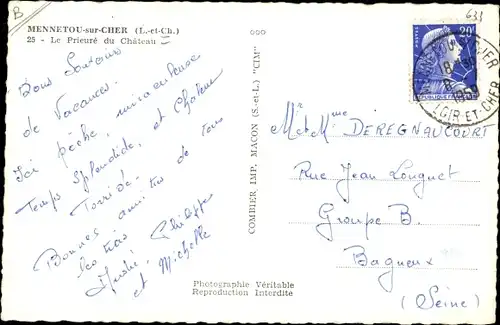 B
MENNETOU-sur-CHER (L.-et-Ch.)
25 - Le Prieuré du Château
Bons Souvenirs
de Vacances.
Ici pêche, miraculeuse
Temps splendide, et Chaleur
Torride.
Bonnes amitiés de tous
les trois
André, Philippe
et Michelle
COMBIER IMP. MACON (S.-et-L.) "CIM"
Photographie Véritable
Reproduction Interdite
633
20F
POSTES
LOIR-ET-CHER
M. et Mme DEREGNAUCOURT
Rue Jean Longuet
Groupe B.
Bagneux
(Seine)